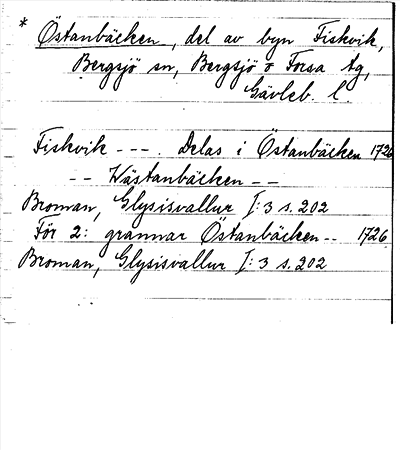 * Östanbäcken, del av byn Fiskvik,
Bergsjö sn, Bergsjö o Forsa tg,
Gävleb. l.
Fiskvik ---. Delas i Östanbäcken 1726
-- Wästanbäcken --
Broman, Glysisvallur I:3 s. 202
För 2: grannar Östanbäcken -- 1726
Broman, Glysisvallur I:3 s. 202